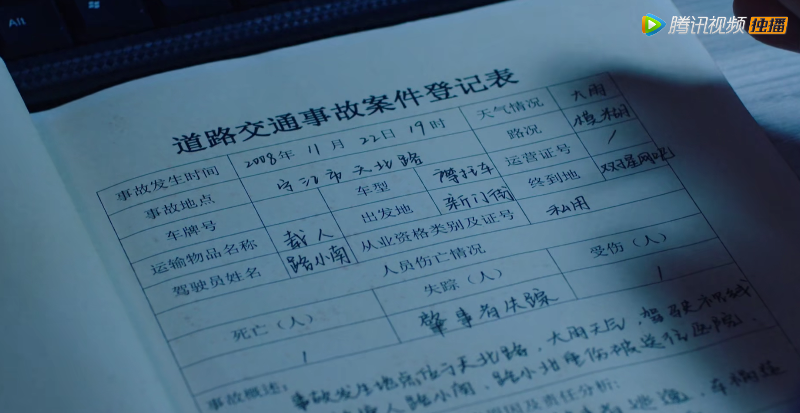 Alt
腾讯视频 独播
道路交通事故案件登记表
事故发生时间 2008年 11月 22日 19时 天气情况 大雨
事故地点 宁江市天北路 路况 模糊
车牌号 车型 摩托车 运营证号 /
运输物品名称 载人 出发地 新门街 终到地 双星网吧
驾驶员姓名 路小南 从业资格类别及证号 私用
人员伤亡情况
死亡（人） 失踪（人） 受伤（人）
1 肇事者失踪 1
事故概述： 事故发生地点位于天北路，大雨天气，驾驶
路小南，路小北重伤被送往医院
因及责任分析：